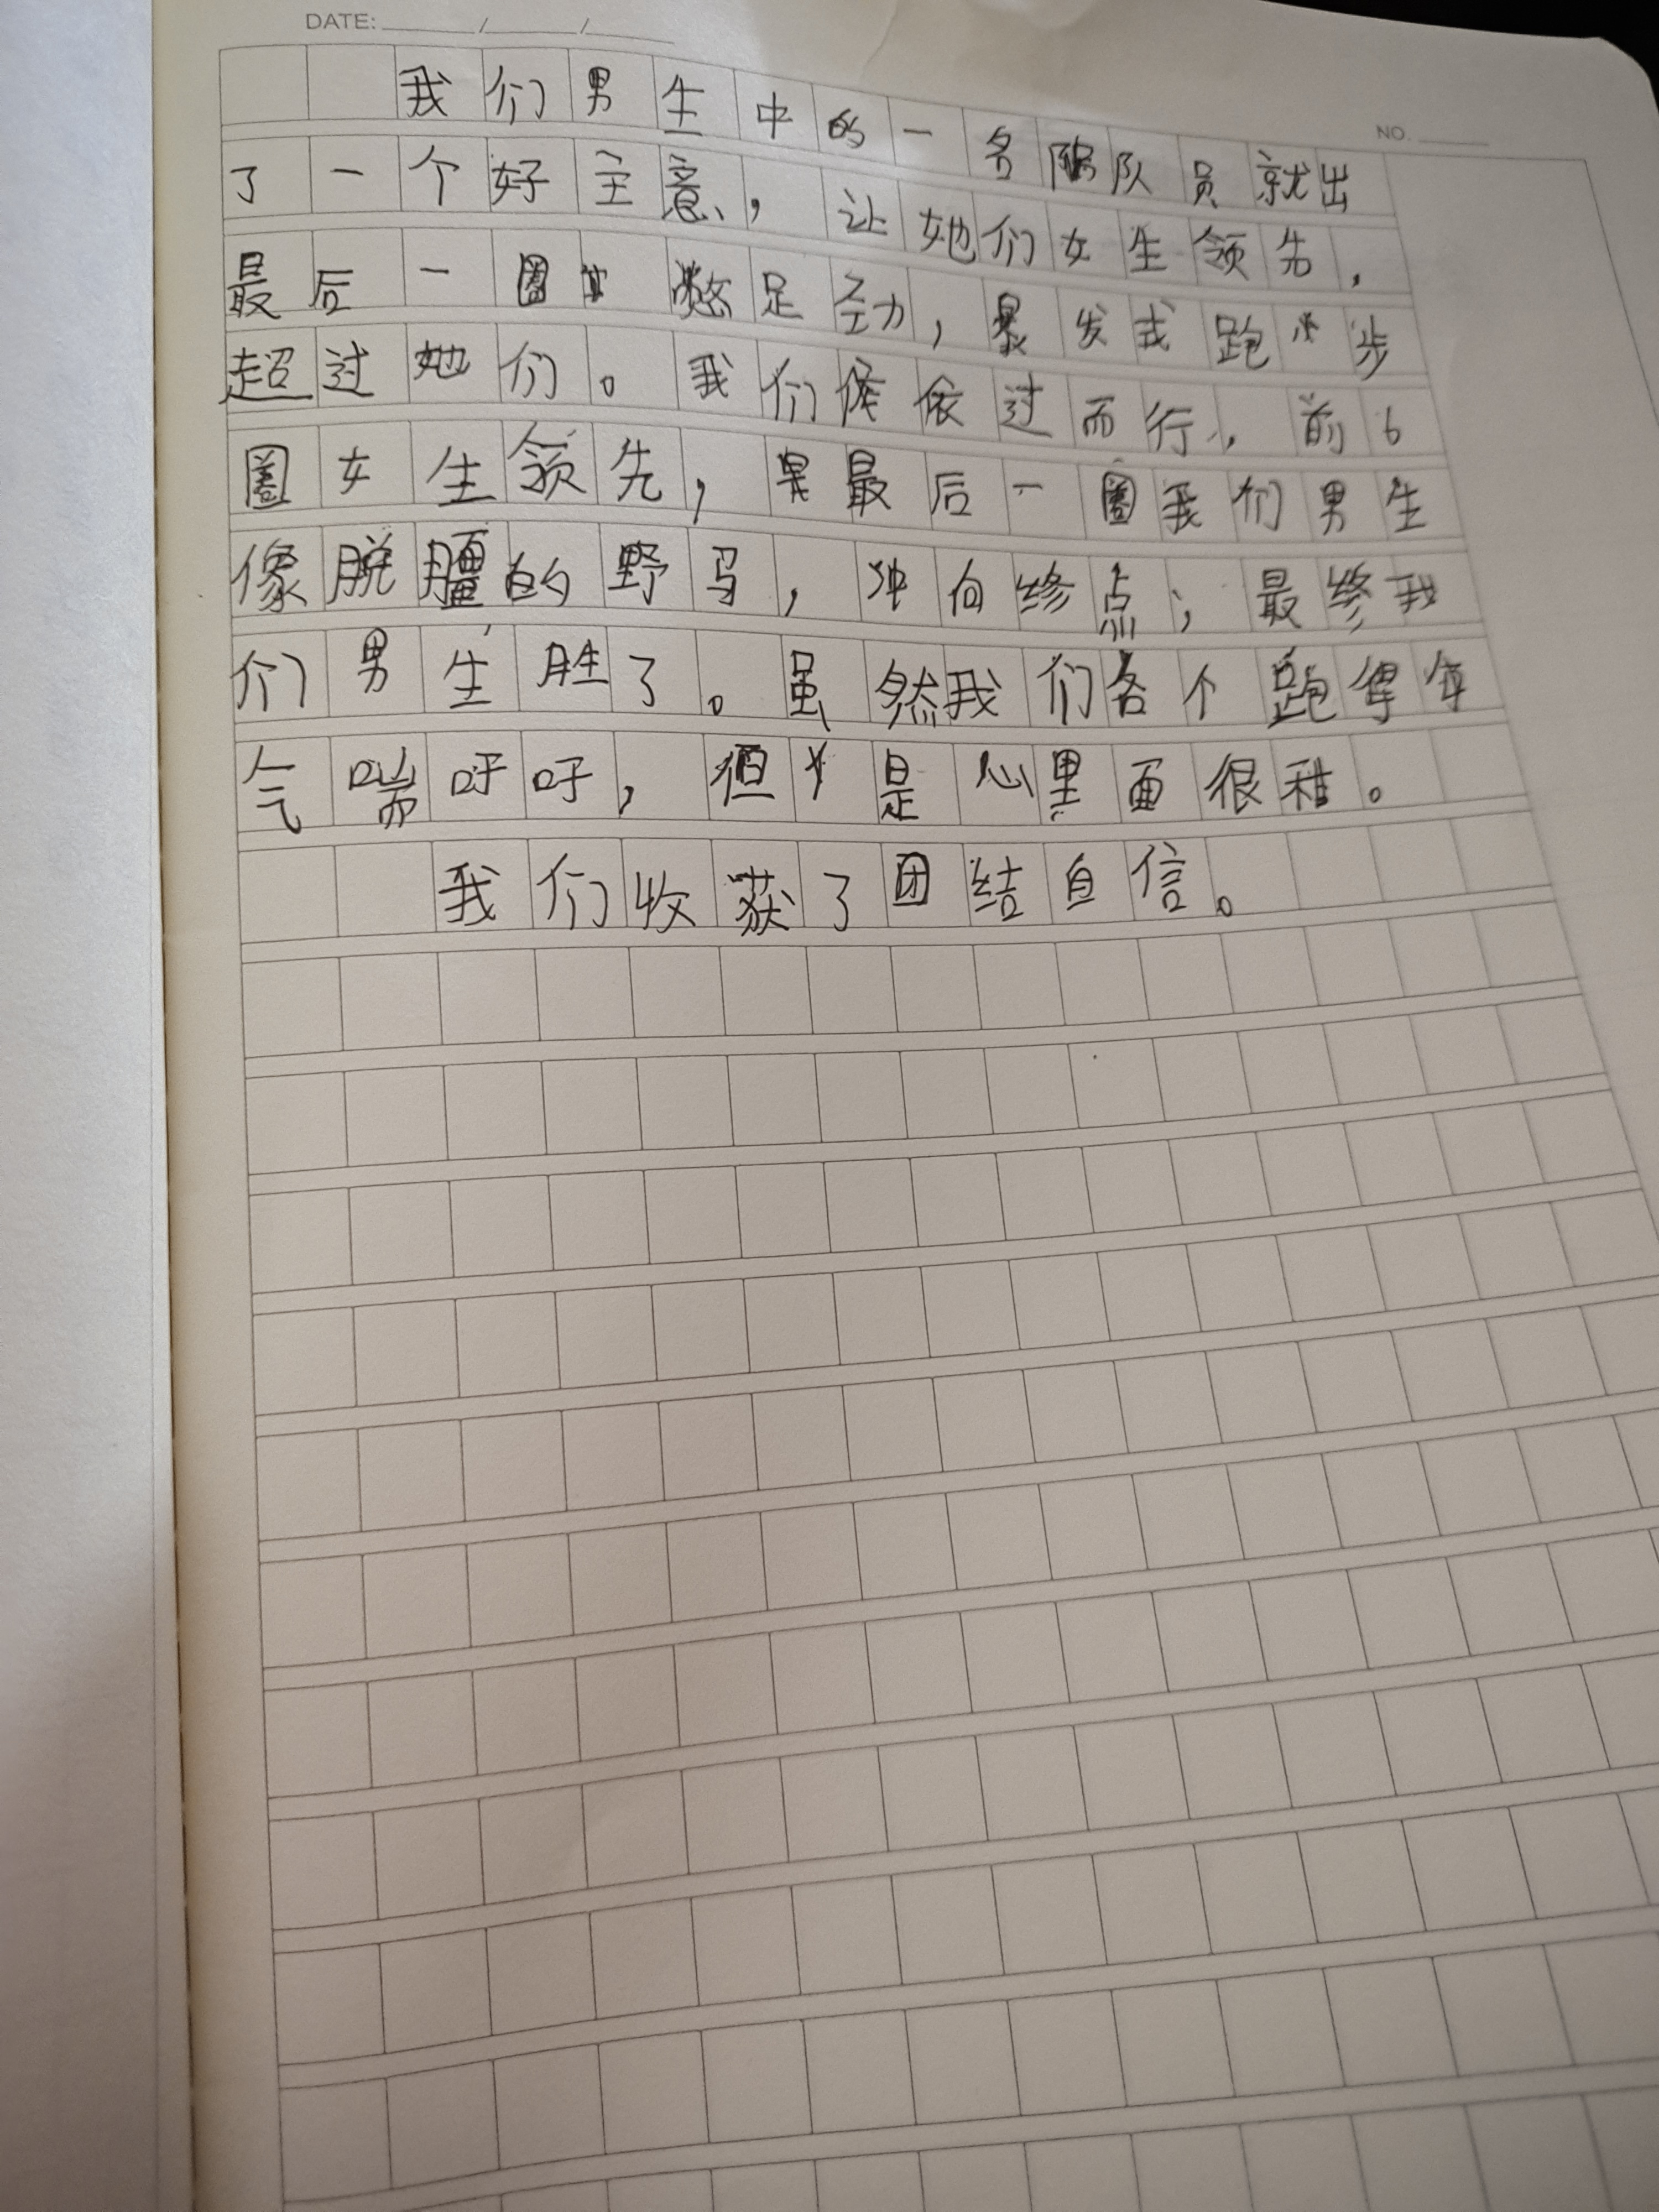 DATE: / /
NO.
我们男生中的一名队员就出
了一个好主意，让她们女生领先，
最后一圈憋足劲，暴发式跑步
超过她们。我们依过而行，前6
圈女生领先，最后一圈我们男生
像脱疆的野马，冲向终点；最终我
们男生胜了。虽然我们各个跑得
气喘吁吁，但是心里面很甜。
我们收获了团结自信。